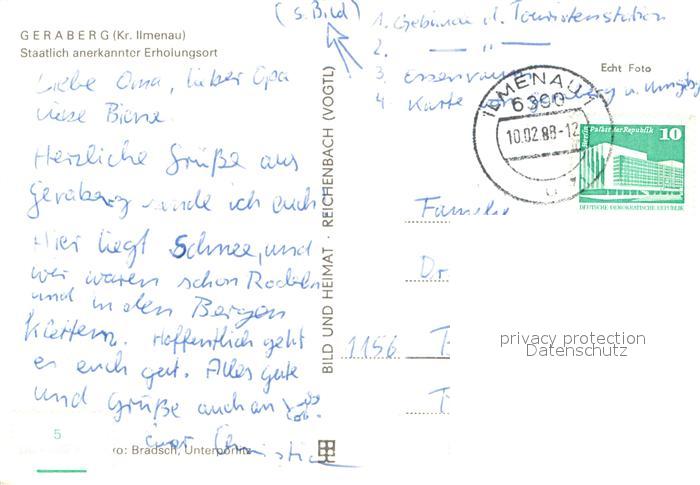 (s. Bild)
1. Gebäude d. Touristenstation
2. — " —
3. Essenraum
4. Karte von Geraberg u. Umgebg
GERABERG (Kr. Ilmenau)
Staatlich anerkannter Erholungsort
Echt Foto
Liebe Oma, lieber Opa
liebe Biene.
Herzliche Grüße aus
Geraberg sende ich euch
Hier liegt Schnee, und
wir waren schon Rodeln
und in den Bergen
klettern. Hoffentlich geht
es euch gut. Alles gute
und Grüße auch an
euer Christian
BILD UND HEIMAT · REICHENBACH (VOGTL)
ILMENAU 1
6300
10.02.88-12
Berlin, Palast der Republik
10
DEUTSCHE DEMOKRATISCHE REPUBLIK
Familie
Dr.
1156
privacy protection
Datenschutz
5
ro: Bradsch, Unterpörlitz